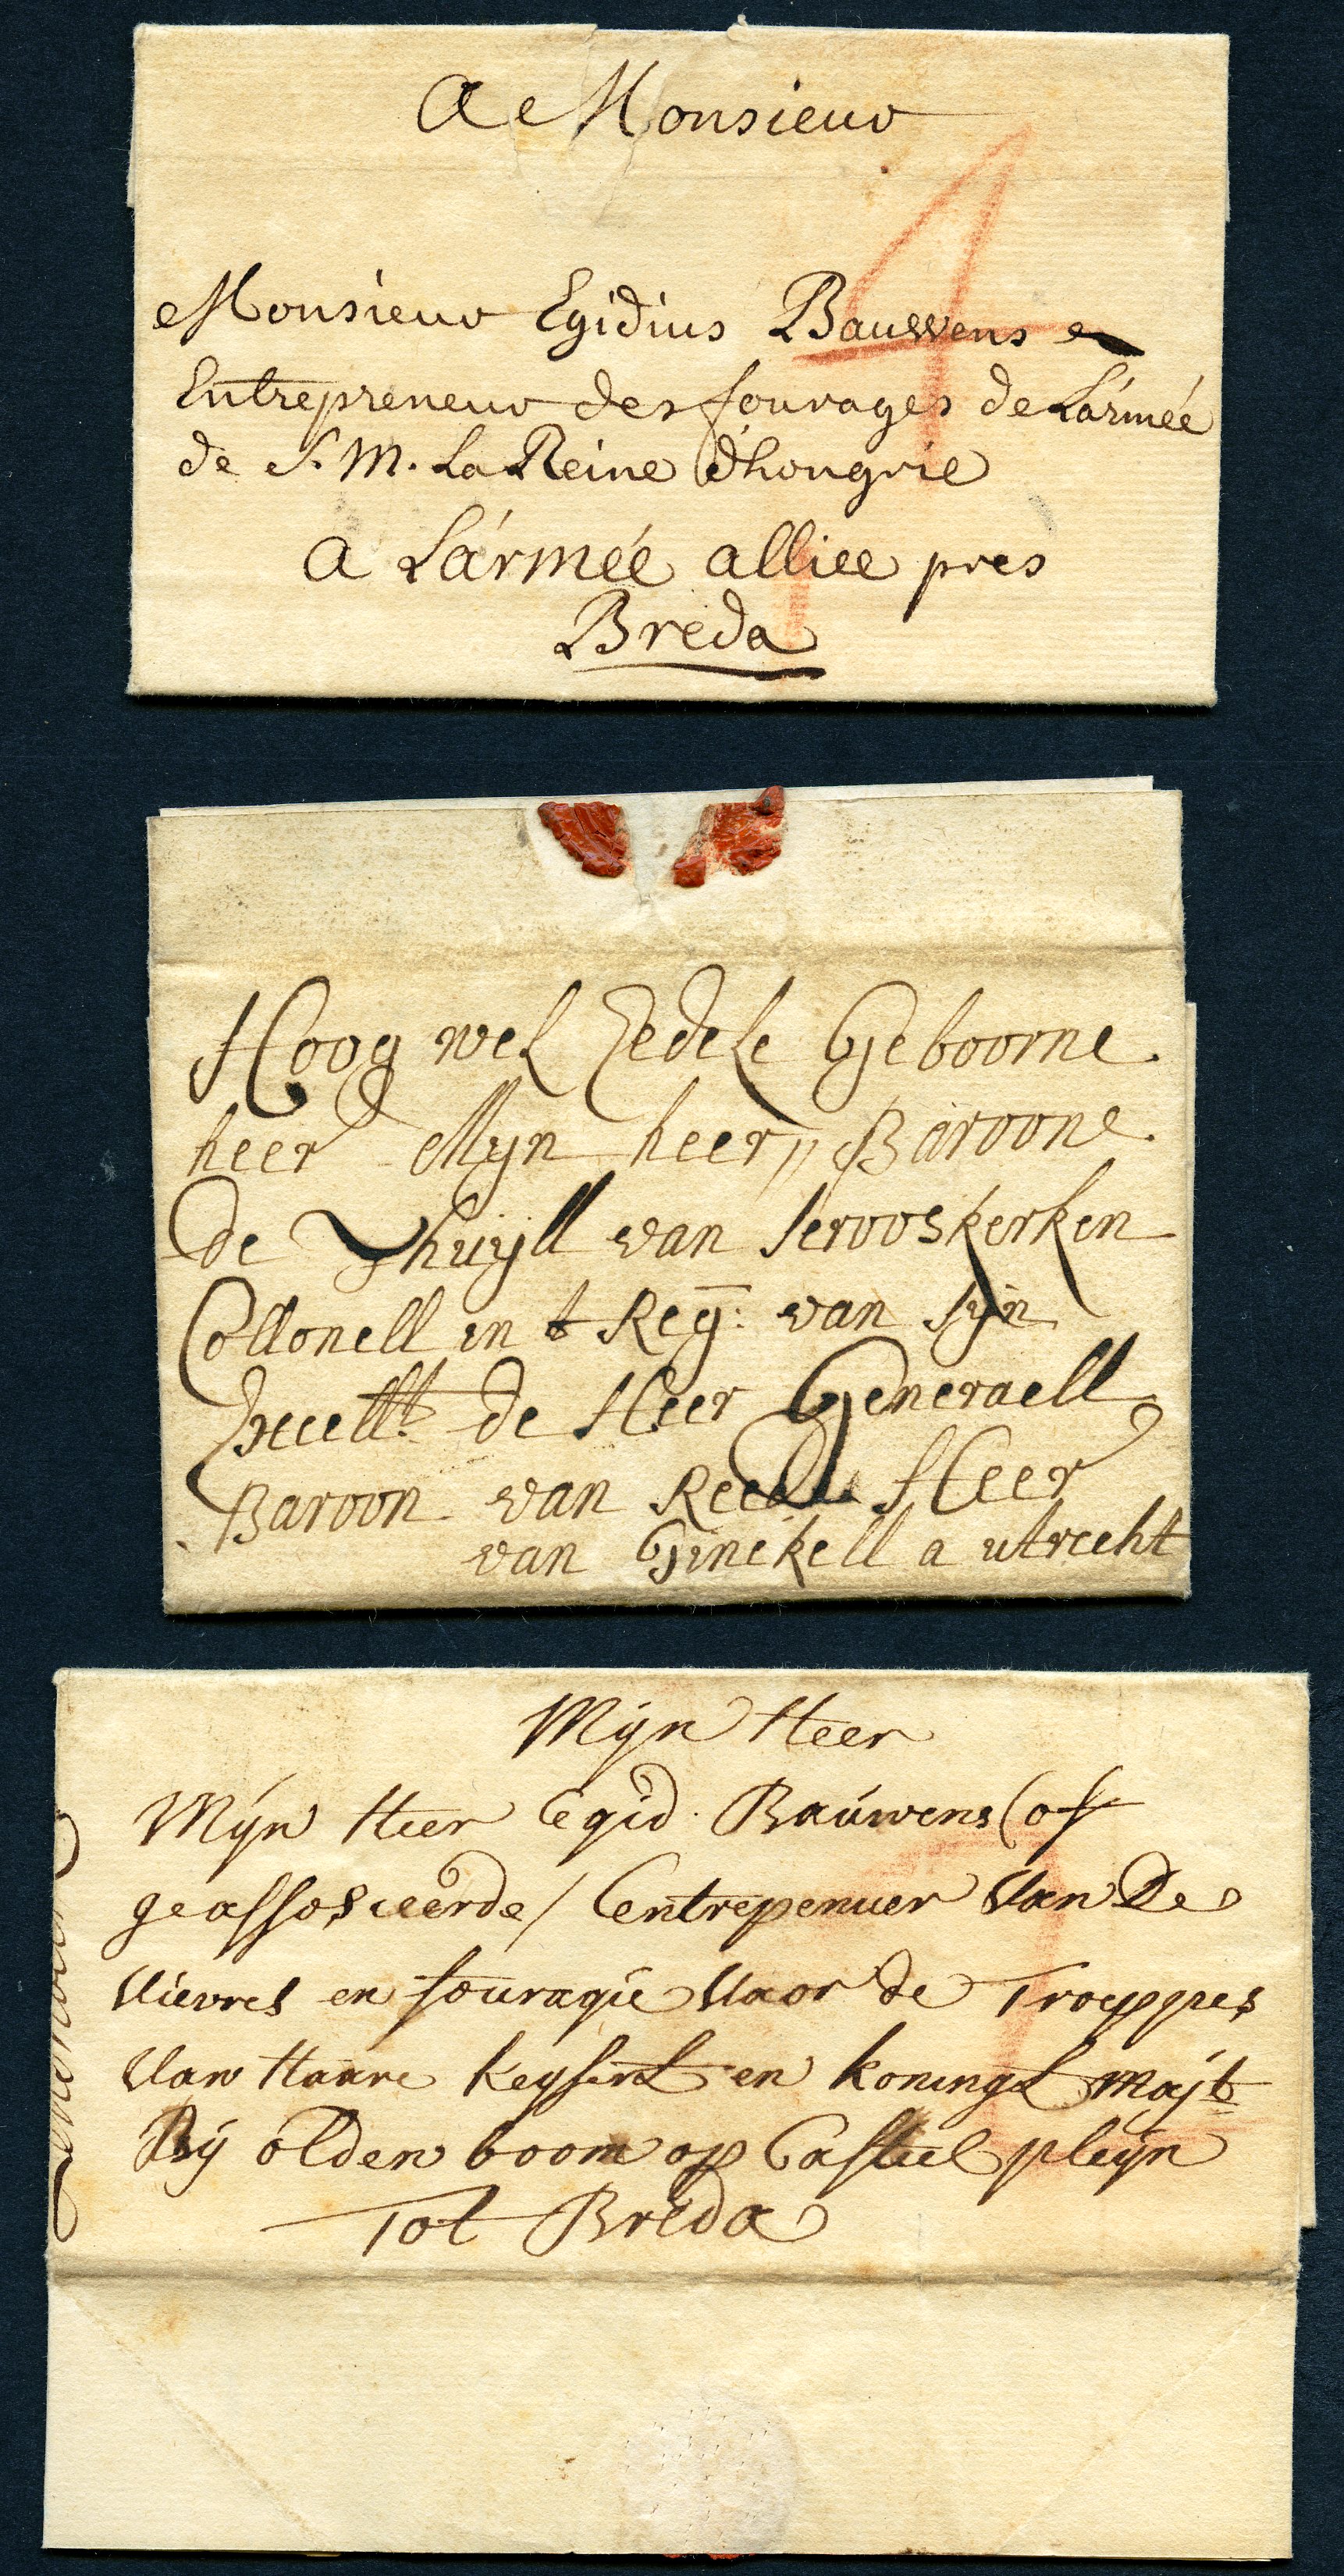 A Monsieur
4
Monsieur Egidius Bauwens
Entrepreneur des fourages de L'armée
de S. M. La Reine d'hongrie
A L'armée alliee pres
Breda
Hoog wel Eedele Geboorne
heer Myn heer,, Baroone
de Thuyll van Serooskerken
Collonell in t Reg: van Syn
Excell.t de Heer Generaell
Baroon van Reede Heer
van Ginckell a utrecht
Mijn Heer
Mijn Heer Egid. Bauwens (of
geassosieerde / Centrepenuer van De
vievres en fouragie vaor de Troeppes
van Haare Keyserl en koningl Majt
Bij olden boom op Casteel pleijn
Tot Breda